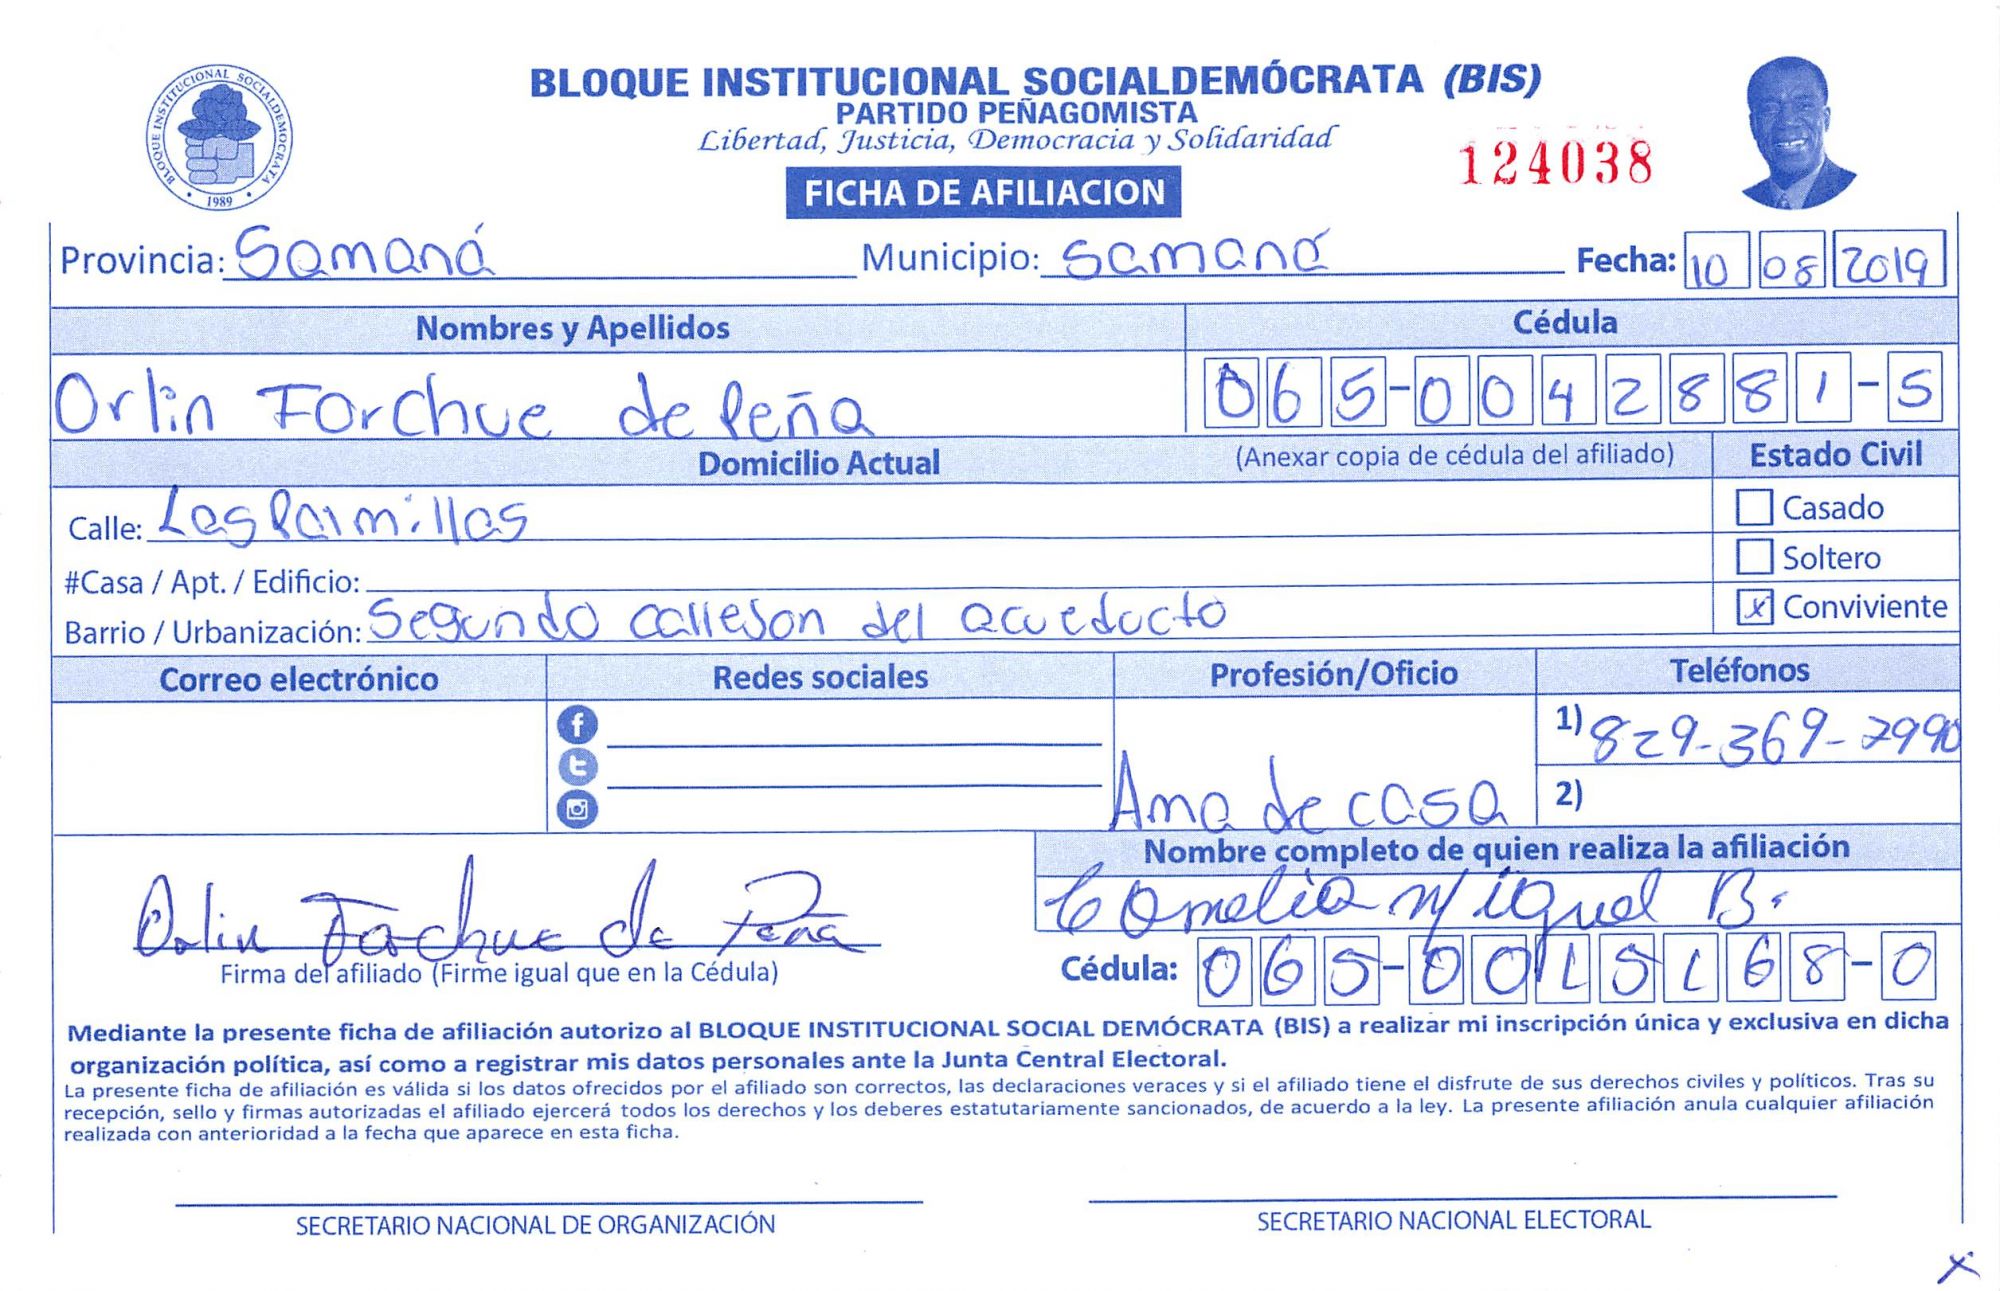 BLOQUE INSTITUCIONAL SOCIALDEMÓCRATA (BIS)
PARTIDO PEÑAGOMISTA
Libertad, Justicia, Democracia y Solidaridad
124038
FICHA DE AFILIACION
BLOQUE INSTITUCIONAL SOCIALDEMOCRATA
1989
Provincia: Samaná Municipio: Samaná Fecha: 10 08 2019
Nombres y Apellidos Cédula
Orlin Forchue de Peña 065-0042881-5
Domicilio Actual (Anexar copia de cédula del afiliado) Estado Civil
Calle: Las Palmillas
Casado
Soltero
x Conviviente
#Casa / Apt. / Edificio:
Barrio / Urbanización: Segundo calleson del acueducto
Correo electrónico Redes sociales Profesión/Oficio Teléfonos
1) 829-369-7990
Ama de casa 2)
Nombre completo de quien realiza la afiliación
Comelia Miguel B.
Orlin Forchue de Peña
Firma del afiliado (Firme igual que en la Cédula) Cédula: 065-0015168-0
Mediante la presente ficha de afiliación autorizo al BLOQUE INSTITUCIONAL SOCIAL DEMÓCRATA (BIS) a realizar mi inscripción única y exclusiva en dicha
organización política, así como a registrar mis datos personales ante la Junta Central Electoral.
La presente ficha de afiliación es válida si los datos ofrecidos por el afiliado son correctos, las declaraciones veraces y si el afiliado tiene el disfrute de sus derechos civiles y políticos. Tras su
recepción, sello y firmas autorizadas el afiliado ejercerá todos los derechos y los deberes estatutariamente sancionados, de acuerdo a la ley. La presente afiliación anula cualquier afiliación
realizada con anterioridad a la fecha que aparece en esta ficha.
SECRETARIO NACIONAL DE ORGANIZACIÓN SECRETARIO NACIONAL ELECTORAL
x